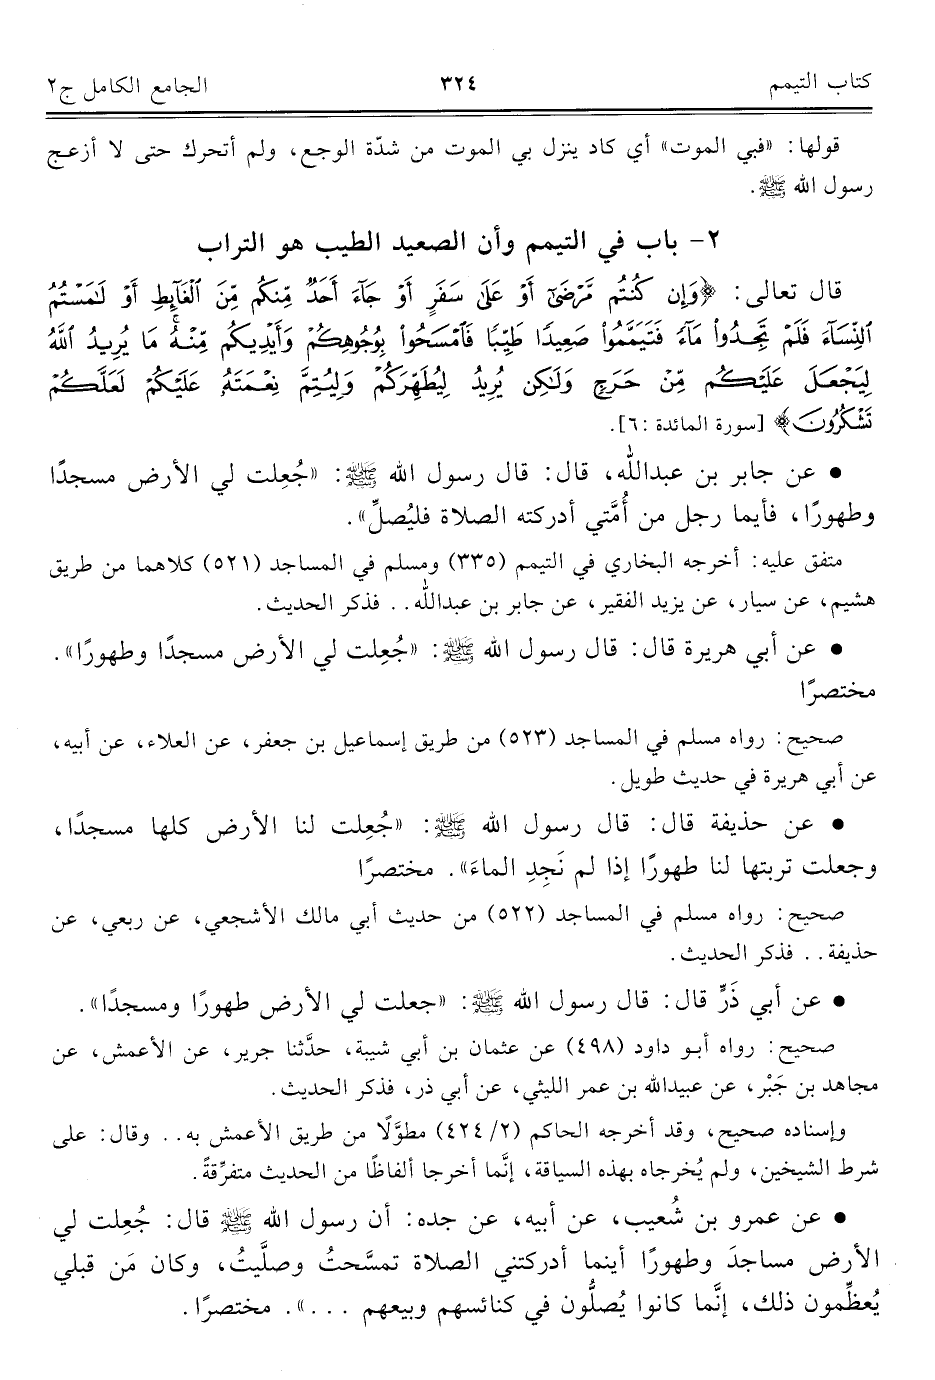 كتاب التيمم ٣٢٤ الجامع الكامل ج٢
قولها: «فبي الموت» أي كاد ينزل بي الموت من شدّة الوجع، ولم أتحرك حتى لا أزعج
رسول الله ﷺ.
٢- باب في التيمم وأن الصعيد الطيب هو التراب
قال تعالى: ﴿وَإِن كُنتُم مَّرْضَىٰٓ أَوْ عَلَىٰ سَفَرٍ أَوْ جَآءَ أَحَدٌ مِّنكُم مِّنَ ٱلْغَآئِطِ أَوْ لَـٰمَسْتُمُ
ٱلنِّسَآءَ فَلَمْ تَجِدُوا۟ مَآءً فَتَيَمَّمُوا۟ صَعِيدًا طَيِّبًا فَٱمْسَحُوا۟ بِوُجُوهِكُمْ وَأَيْدِيكُم مِّنْهُ ۚ مَا يُرِيدُ ٱللَّهُ
لِيَجْعَلَ عَلَيْكُم مِّنْ حَرَجٍ وَلَـٰكِن يُرِيدُ لِيُطَهِّرَكُمْ وَلِيُتِمَّ نِعْمَتَهُۥ عَلَيْكُمْ لَعَلَّكُمْ
تَشْكُرُونَ﴾ [سورة المائدة :٦].
• عن جابر بن عبدالله، قال: قال رسول الله ﷺ: «جُعِلت لي الأرض مسجدًا
وطهورًا، فأيما رجل من أُمَّتي أدركته الصلاة فليُصلِّ».
متفق عليه: أخرجه البخاري في التيمم (٣٣٥) ومسلم في المساجد (٥٢١) كلاهما من طريق
هشيم، عن سيار، عن يزيد الفقير، عن جابر بن عبدالله.. فذكر الحديث.
• عن أبي هريرة قال: قال رسول الله ﷺ: «جُعِلت لي الأرض مسجدًا وطهورًا».
مختصرًا
صحيح: رواه مسلم في المساجد (٥٢٣) من طريق إسماعيل بن جعفر، عن العلاء، عن أبيه،
عن أبي هريرة في حديث طويل.
• عن حذيفة قال: قال رسول الله ﷺ: «جُعِلت لنا الأرض كلها مسجدًا،
وجعلت تربتها لنا طهورًا إذا لم نَجِدِ الماءَ». مختصرًا
صحيح: رواه مسلم في المساجد (٥٢٢) من حديث أبي مالك الأشجعي، عن ربعي، عن
حذيفة.. فذكر الحديث.
• عن أبي ذَرٍّ قال: قال رسول الله ﷺ: «جعلت لي الأرض طهورًا ومسجدًا».
صحيح: رواه أبو داود (٤٩٨) عن عثمان بن أبي شيبة، حدَّثنا جرير، عن الأعمش، عن
مجاهد بن جَبْر، عن عبيدالله بن عمر الليثي، عن أبي ذر، فذكر الحديث.
وإسناده صحيح، وقد أخرجه الحاكم (٤٢٤/٢) مطوَّلًا من طريق الأعمش به.. وقال: على
شرط الشيخين، ولم يُخرجاه بهذه السياقة، إنَّما أخرجا ألفاظًا من الحديث متفرِّقةً.
• عن عمرو بن شُعيب، عن أبيه، عن جده: أن رسول الله ﷺ قال: جُعِلت لي
الأرض مساجدَ وطهورًا أينما أدركتني الصلاة تمسَّحتُ وصلَّيتُ، وكان مَن قبلي
يُعظِّمون ذلك، إنَّما كانوا يُصلُّون في كنائسهم وبيعهم ...». مختصرًا.